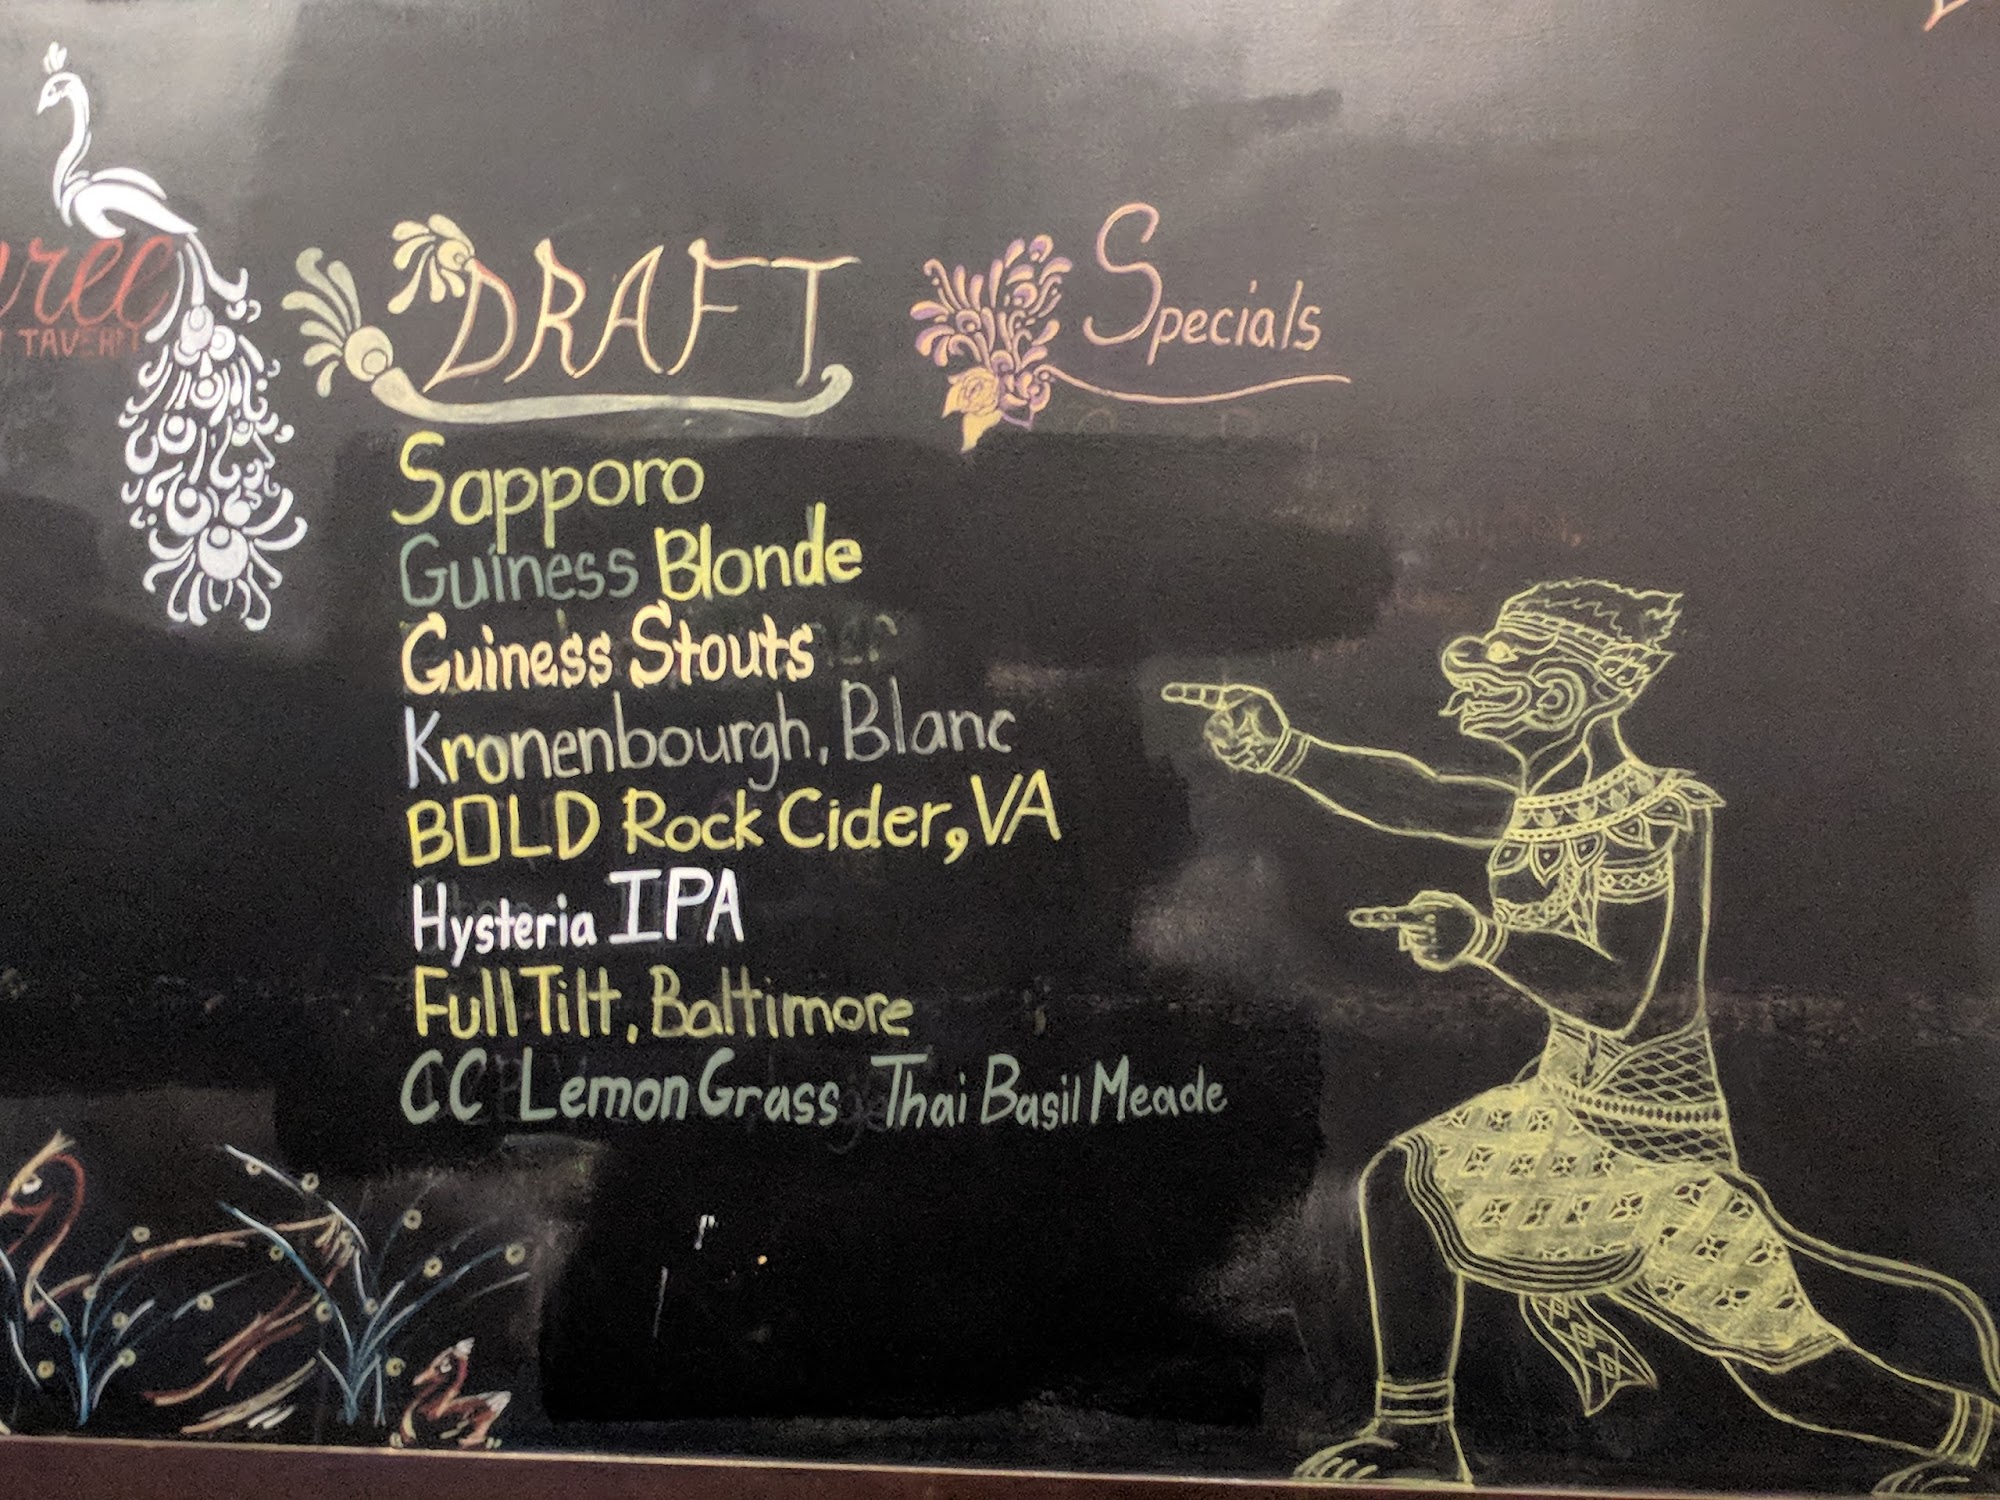 TAVERN
DRAFT
Specials
Sapporo
Guiness Blonde
Guiness Stouts
Kronenbourgh, Blanc
BOLD Rock Cider, VA
Hysteria IPA
Full Tilt, Baltimore
CC Lemon Grass Thai Basil Meade